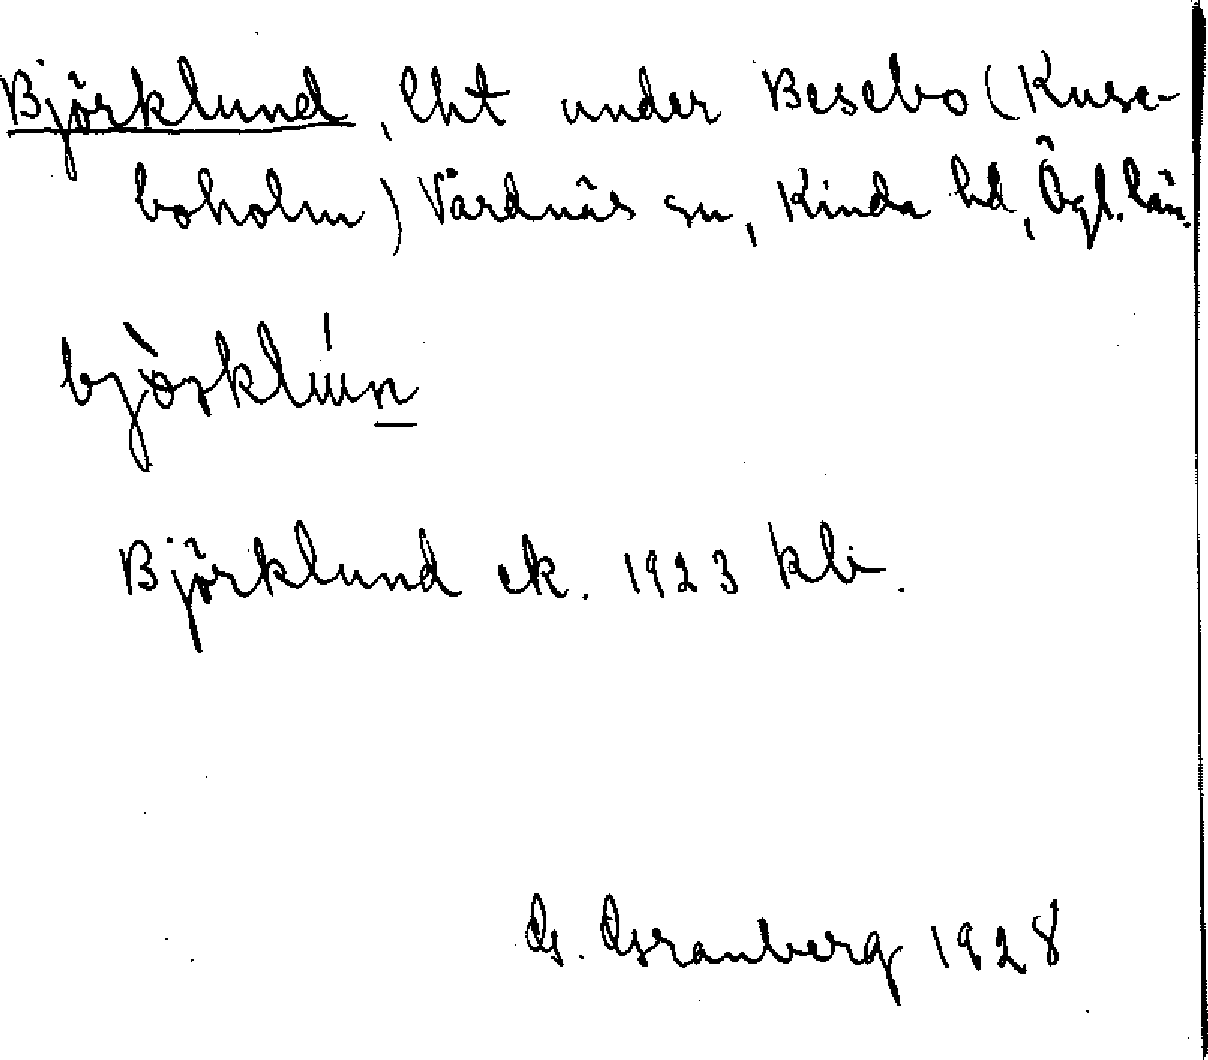 Björklund, lht under Besebo (Kuse-
boholm) Vårdnäs sn, Kinda hd, Ögl. län.
björklún
Björklund ek. 1923 kbr.
G. Granberg 1928